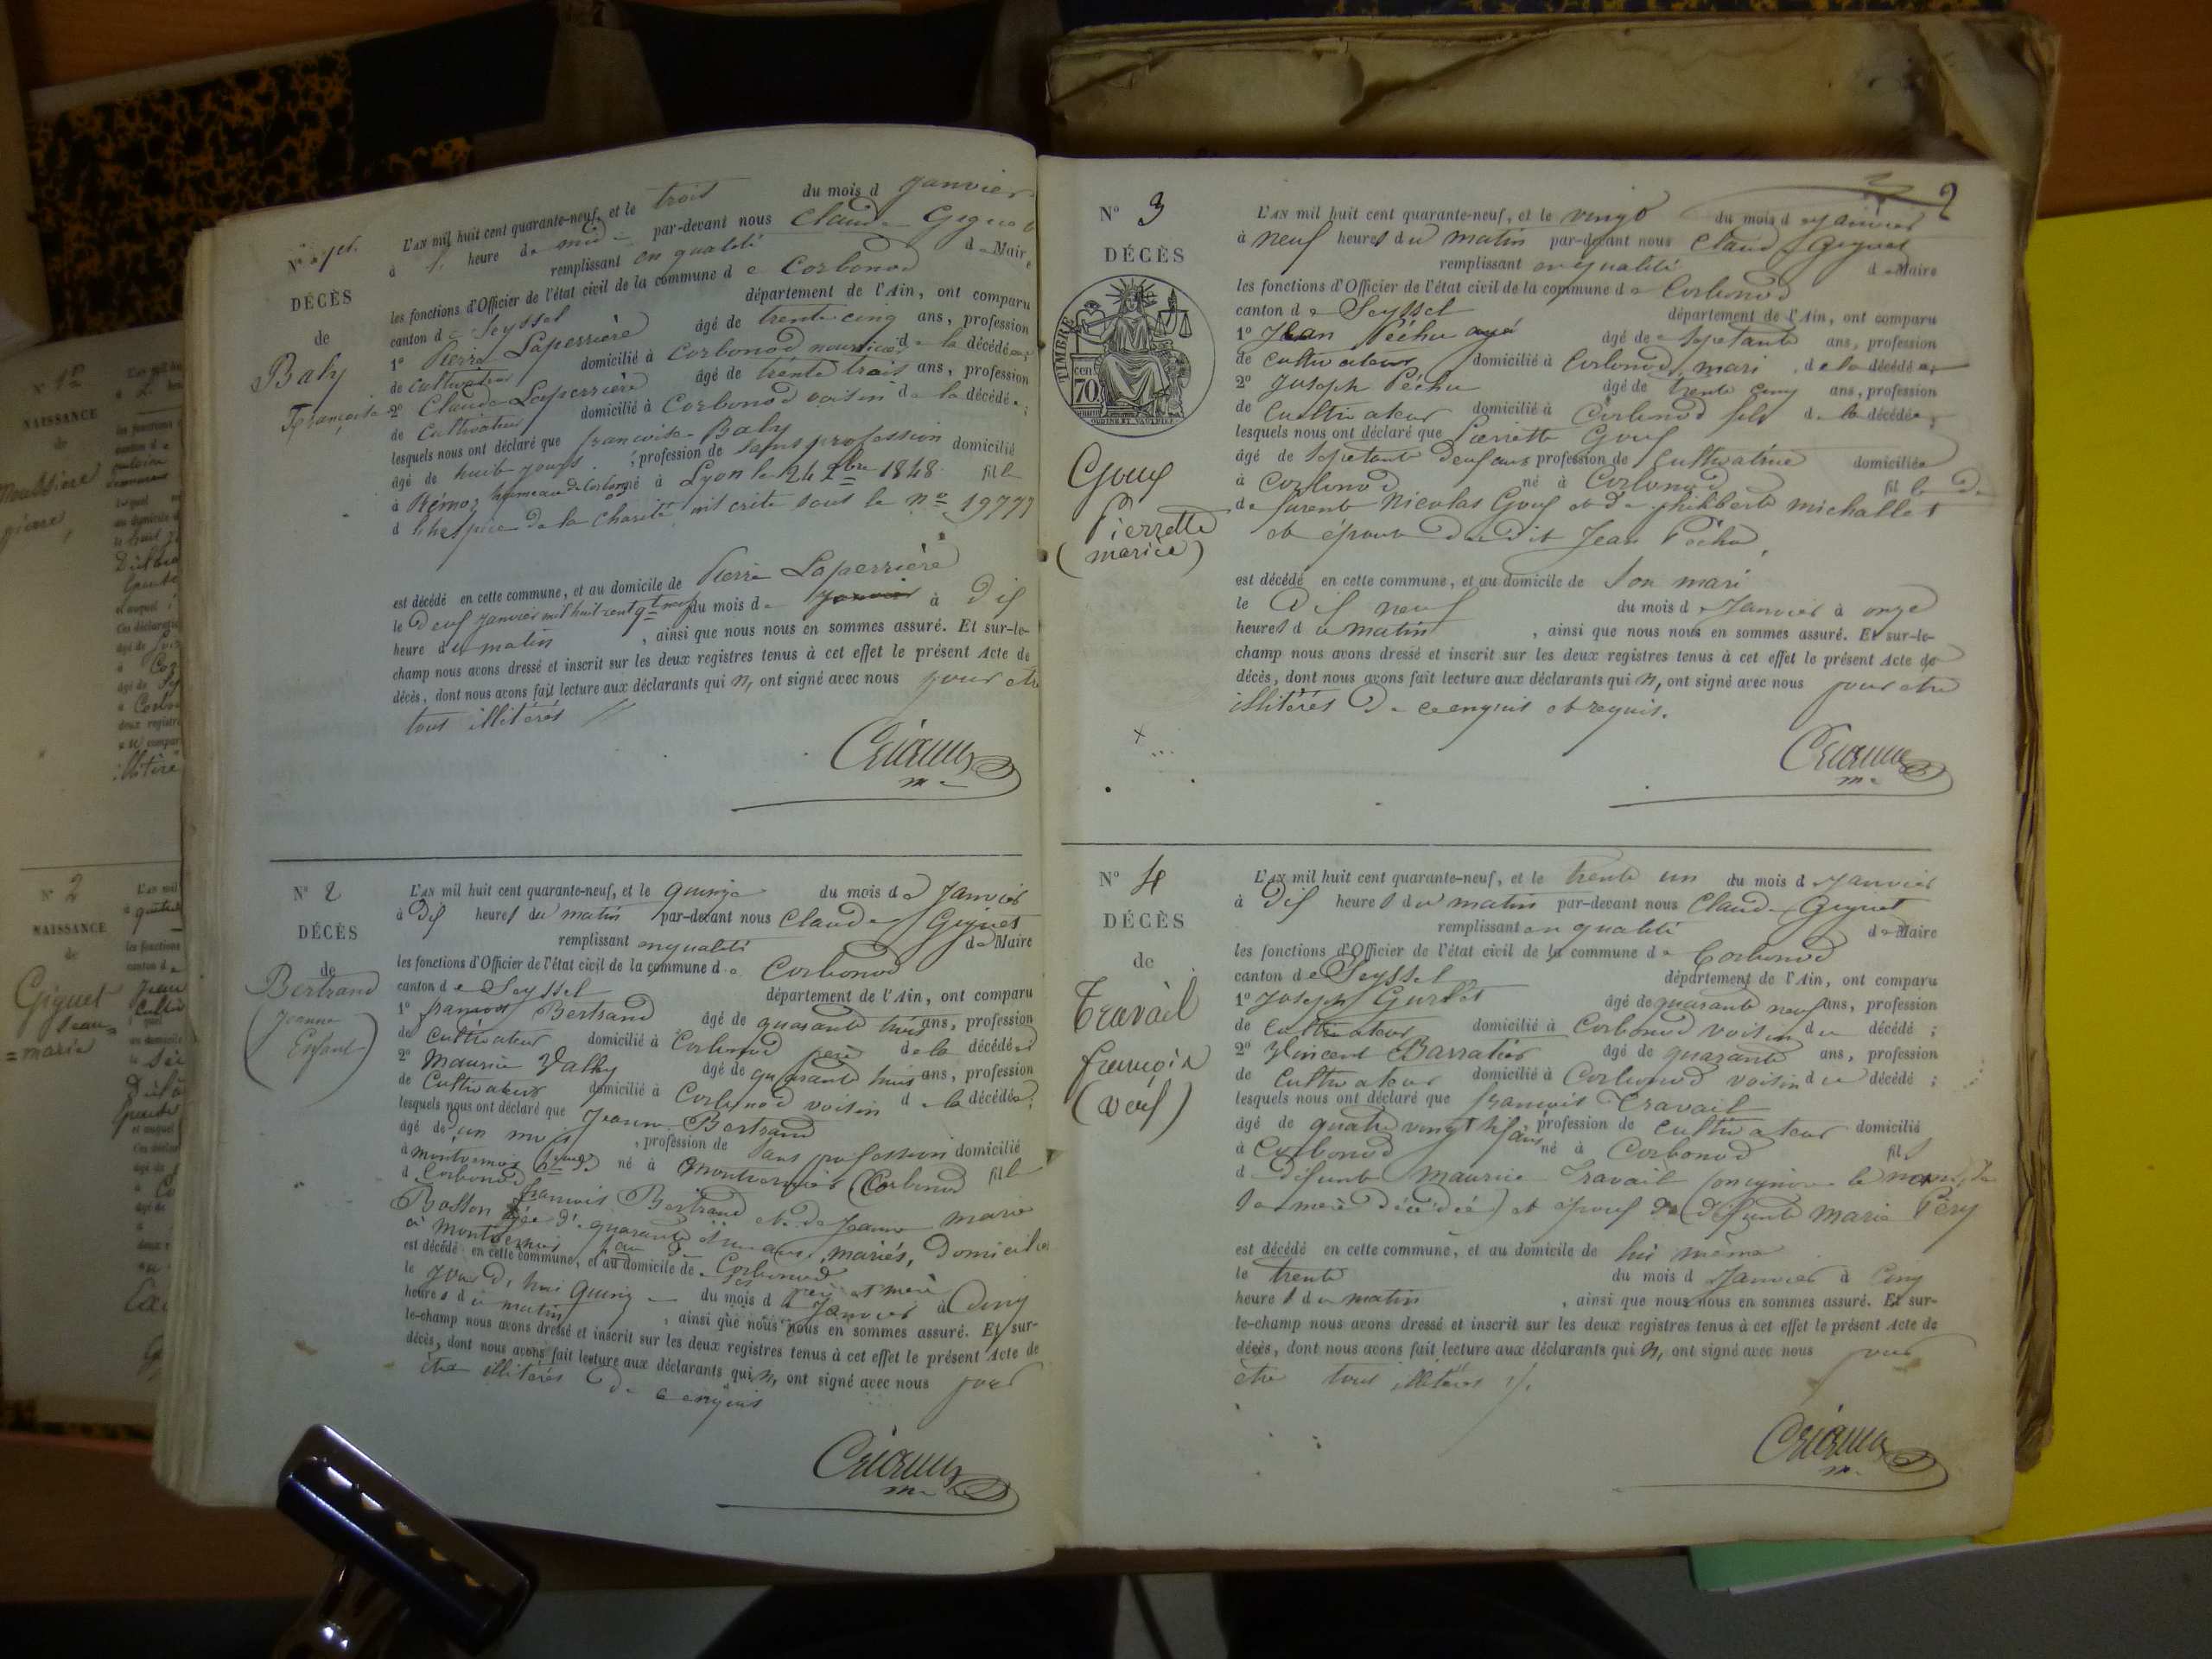 N° 1er.
DÉCÈS
de
Baly
Françoise
L'AN mil huit cent quarante-neuf, et le trois du mois d janvier
à 1 heure de midi par-devant nous Claude Giguet
remplissant en qualité de Maire
les fonctions d'Officier de l'état civil de la commune de Corbonod
canton de Seyssel département de l'Ain, ont comparu
1° Pierre Laperrière âgé de trente cinq ans, profession
de cultivateur domicilié à Corbonod nourricier de la décédée;
2° Claude Laperrière âgé de trente trois ans, profession
de cultivateur domicilié à Corbonod voisin de la décédée;
lesquels nous ont déclaré que françoise Baly
âgé de huit jours, profession de sans profession domicilié
à Rémoz hameau de Corbonod né à Lyon le 24 Xbre 1848 fille
d l'hospice de la Charité inscrite sous le n° 19777
est décédé en cette commune, et au domicile de Pierre Laperrière
le Deux janvier mil huit cent qte neuf du mois de janvier à dix
heure du matin, ainsi que nous nous en sommes assuré. Et sur-le-
champ nous avons dressé et inscrit sur les deux registres tenus à cet effet le présent Acte de
décès, dont nous avons fait lecture aux déclarants qui n, ont signé avec nous pour etre
tous illitérés
N° 2
DÉCÈS
de
Bertrand
(Jeanne
Enfant)
L'AN mil huit cent quarante-neuf, et le quinze du mois de Janvier
à Dix heures du matin par-devant nous Claude Giguet
remplissant en qualité de Maire
les fonctions d'Officier de l'état civil de la commune de Corbonod
canton de Seyssel département de l'Ain, ont comparu
1° françois Bertrand âgé de quarante trois ans, profession
de cultivateur domicilié à Corbonod père de la décédée
2° Maurice Vally âgé de quarante trois ans, profession
de Cultivateur domicilié à Corbonod voisin de la décédée;
lesquels nous ont déclaré que Jeanne Bertrand
âgé de un mois, profession de sans profession domicilié
à montvernier né à montvernier (Corbonod fille
d Corbonod françois Bertrand et de Jeanne marie
Bosson âgée de quarante ans, mariés, Domiciliés
à montvernier
est décédé en cette commune, et au domicile de Corbonod
ses père et mère
le jour d, hui Quinze du mois de Janvier à Cinq
heures du matin, ainsi que nous nous en sommes assuré. Et sur-
le-champ nous avons dressé et inscrit sur les deux registres tenus à cet effet le présent Acte de
décès, dont nous avons fait lecture aux déclarants qui n, ont signé avec nous pour
être illitérés de ce enquis
N° 3
2
DÉCÈS
TIMBRE
cen
70
Goux
Pierrette
(mariée)
L'AN mil huit cent quarante-neuf, et le vingt du mois de Janvier
à neuf heures du matin par-devant nous Claude Giguet
remplissant en qualité de Maire
les fonctions d'Officier de l'état civil de la commune de Corbonod
canton de Seyssel département de l'Ain, ont comparu
1° Jean Péchu âgé de Septante ans, profession
de cultivateur domicilié à Corbonod mari, de la décédée;
2° Joseph Péchu âgé de trente cinq ans, profession
de Cultivateur domicilié à Corbonod fils de la décédée;
lesquels nous ont déclaré que Pierrette Goux
âgé de Septante Deux ans profession de Cultivatrice domiciliée
à Corbonod né à Corbonod fille de
defunts Nicolas Goux et de philiberte michallet
et épouse du dit Jean Péchu,
est décédé en cette commune, et au domicile de Son mari
le Dix neuf du mois de Janvier à onze
heures du matin, ainsi que nous nous en sommes assuré. Et sur-le-
champ nous avons dressé et inscrit sur les deux registres tenus à cet effet le présent Acte de
décès, dont nous avons fait lecture aux déclarants qui n, ont signé avec nous pour etre
illitérés De ce enquis et requis.
N° 4
DÉCÈS
de
Travail
françois
(veuf)
L'AN mil huit cent quarante-neuf, et le trente un du mois d Janvier
à Dix heures du matin par-devant nous Claude Giguet
remplissant en qualité de Maire
les fonctions d'Officier de l'état civil de la commune de Corbonod
canton de Seyssel département de l'Ain, ont comparu
1° Joseph Gurlet âgé de quarante neuf ans, profession
de Cultivateur domicilié à Corbonod voisin du décédé;
2° Vincent Barratier âgé de quarante ans, profession
de Cultivateur domicilié à Corbonod voisin du décédé;
lesquels nous ont déclaré que françois Travail
âgé de quatre vingt six ans profession de Cultivateur domicilié
à Corbonod né à Corbonod fils
d défunts maurice Travail (on ignore le nom de
sa mère décédée) et époux de défunte marie Péry
est décédé en cette commune, et au domicile de lui même
le trente du mois d Janvier à Cinq
heures du matin, ainsi que nous nous en sommes assuré. Et sur-
le-champ nous avons dressé et inscrit sur les deux registres tenus à cet effet le présent Acte de
décès, dont nous avons fait lecture aux déclarants qui n, ont signé avec nous pour
etre tous illitérés
N° 1er
NAISSANCE
de
pierre,
N° 2
NAISSANCE
de
Giguet
Jean
= marie